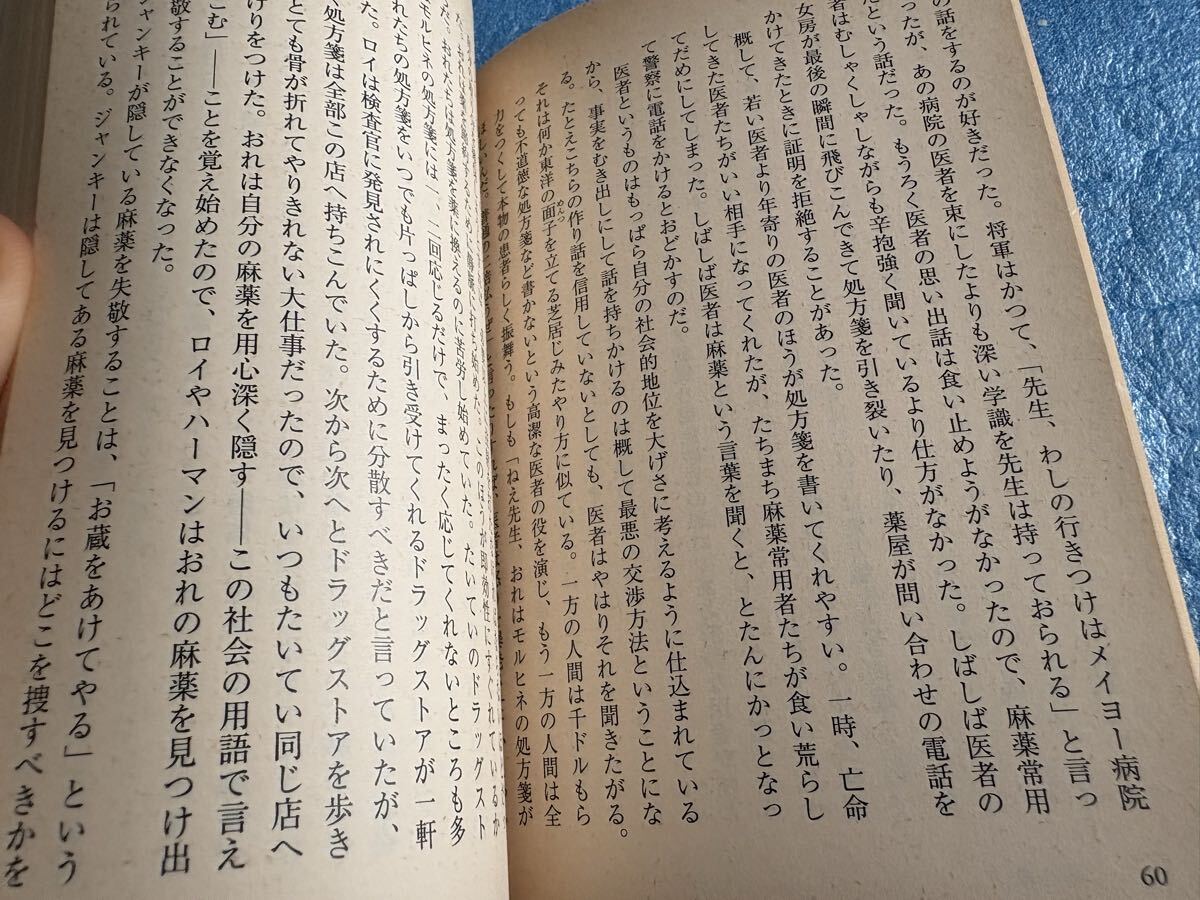 の話をするのが好きだった。将軍はかつて、「先生、わしの行きつけはメイヨー病院
ったが、あの病院の医者を束にしたよりも深い学識を先生は持っておられる」と言っ
だという話だった。もうろく医者の思い出話は食い止めようがなかったので、麻薬常用
者はむしゃくしゃしながらも辛抱強く聞いているより仕方がなかった。しばしば医者の
女房が最後の瞬間に飛びこんできて処方箋を引き裂いたり、薬屋が問い合わせの電話を
かけてきたときに証明を拒絶することがあった。
概して、若い医者より年寄りの医者のほうが処方箋を書いてくれやすい。一時、亡命
してきた医者たちがいい相手になってくれたが、たちまち麻薬常用者たちが食い荒らし
てだめにしてしまった。しばしば医者は麻薬という言葉を聞くと、とたんにかっとなっ
て警察に電話をかけるとおどかすのだ。
医者というものはもっぱら自分の社会的地位を大げさに考えるように仕込まれている
から、事実をむき出しにして話を持ちかけるのは概して最悪の交渉方法ということにな
る。たとえこちらの作り話を信用していないとしても、医者はやはりそれを聞きたがる。
それは何か東洋の面子を立てる芝居じみたやり方に似ている。一方の人間は千ドルもら
っても不道徳な処方箋など書かないという高潔な医者の役を演じ、もう一方の人間は全
力をつくして本物の患者らしく振舞う。もしも「ねえ先生、おれはモルヒネの処方箋が
60
た。おれたちは処方箋を薬に換えるのに苦労し始めていた。たいていのドラッグスト
モルヒネの処方箋には一、二回応じるだけで、まったく応じてくれないところも多
れたちの処方箋をいつでも片っぱしから引き受けてくれるドラッグストアが一軒
た。ロイは検査官に発見されにくくするために分散すべきだと言っていたが、
処方箋は全部この店へ持ちこんでいた。次から次へとドラッグストアを歩き
とても骨が折れてやりきれない大仕事だったので、いつもたいてい同じ店へ
けりをつけた。おれは自分の麻薬を用心深く隠す――この社会の用語で言え
こむ」――ことを覚え始めたので、ロイやハーマンはおれの麻薬を見つけ出
敬することができなくなった。
ジャンキーが隠している麻薬を失敬することは、「お蔵をあけてやる」という
られている。ジャンキーは隠してある麻薬を見つけるにはどこを捜すべきかを